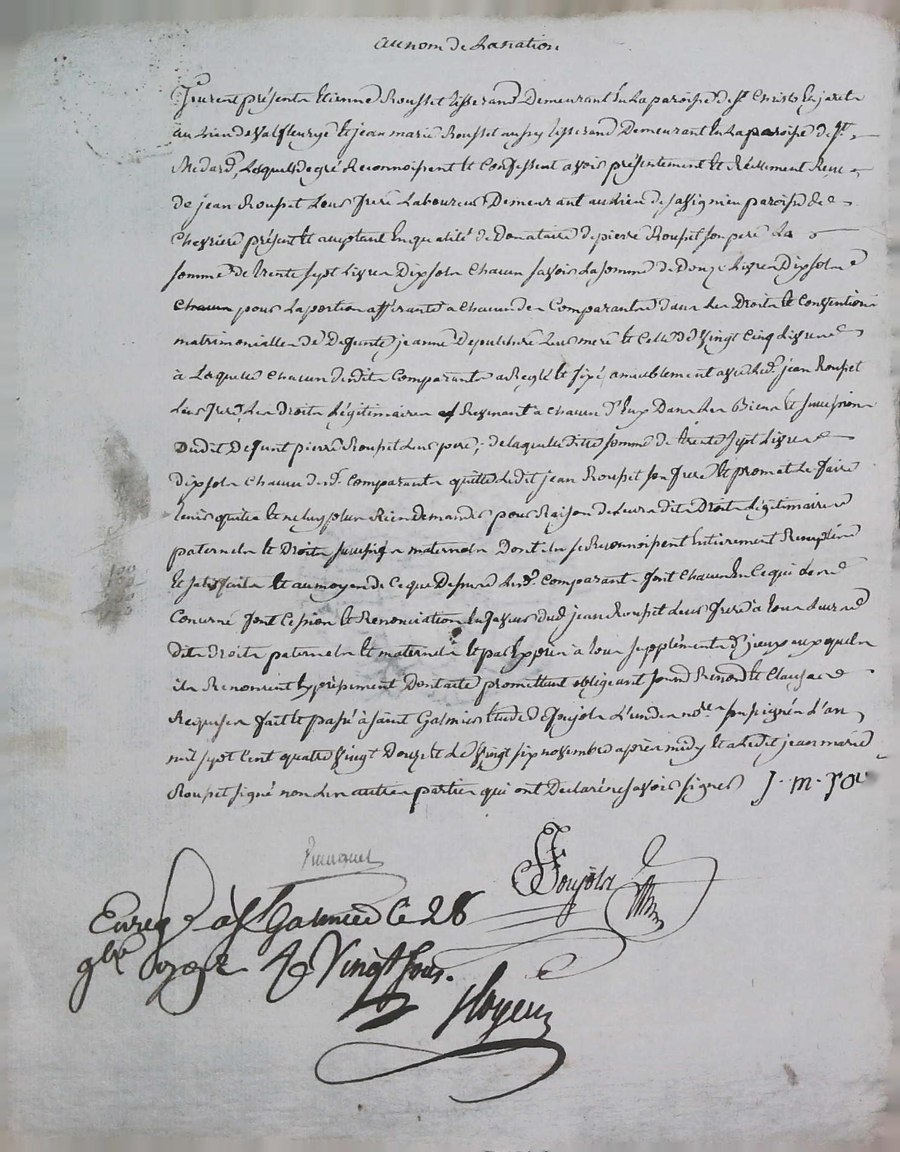 au nom de la nation
furent présents Etienne Rousset tisserand demeurant en la paroisse de St Christo en jarets
au lieu de valfleurye et jean marie Rousset aussy tisserand demeurant en la paroisse de St
Medard, Lesquels de gré Reconnoissent et confessent avoir présentement et Réellement Receu
de jean Rousset leur frere laboureur demeurant au lieu de paroisse de
chevriere présent et acceptant en qualité de donataire de pierre Rousset son pere La
somme de trente sept livres dix sols chacun savoir la somme de douze livres dix sols
chacun pour la portion afferante a chacun des comparants dans les droits et conventions
matrimonialles de defunte jeanne leur mere et celle de vingt cinq livres
à laquelle chacun desdits comparants a Reglé et fixé amiablement avec led. jean Rousset
leur frere les droits légitimaires Revenant a chacun d'eux dans les biens et succession
dudit defunt pierre Rousset leur pere, de laquelle dite somme de trente sept livres
dix sols chacun lesd. comparants quitte ledit jean Rousset son frere et promet le faire
tenir quitte et ne luy plus Rien demander pour Raison de leurs dits droits légitimaires
paternels et droits maternels dont ils se Reconnoissent entierement Remplis
et satisfaits et au moyen de ce que dessus lesd. comparants font chacun en ce qui le
concerne font cession et Renonciation en faveur dud. jean Rousset leur frere à tous leurs
dits droits paternels et maternels et par exprès à tous suppléments d'jceux auxquels
ils Renoncent expressement dont acte promettant obligeant soumd Renond et clauses
Requises fait et passé à saint Galmier etude de Soujola l'un des nores soussignés l'an
mil sept cent quatre vingt douze et le vingt six novembre après midy et a ledit jean marie
Rousset signé non les autres parties qui ont déclaré ne savoir signer J. m. rou
Soujola
Enreg à St Galmier le 28
9bre 1792 Vingt sous.